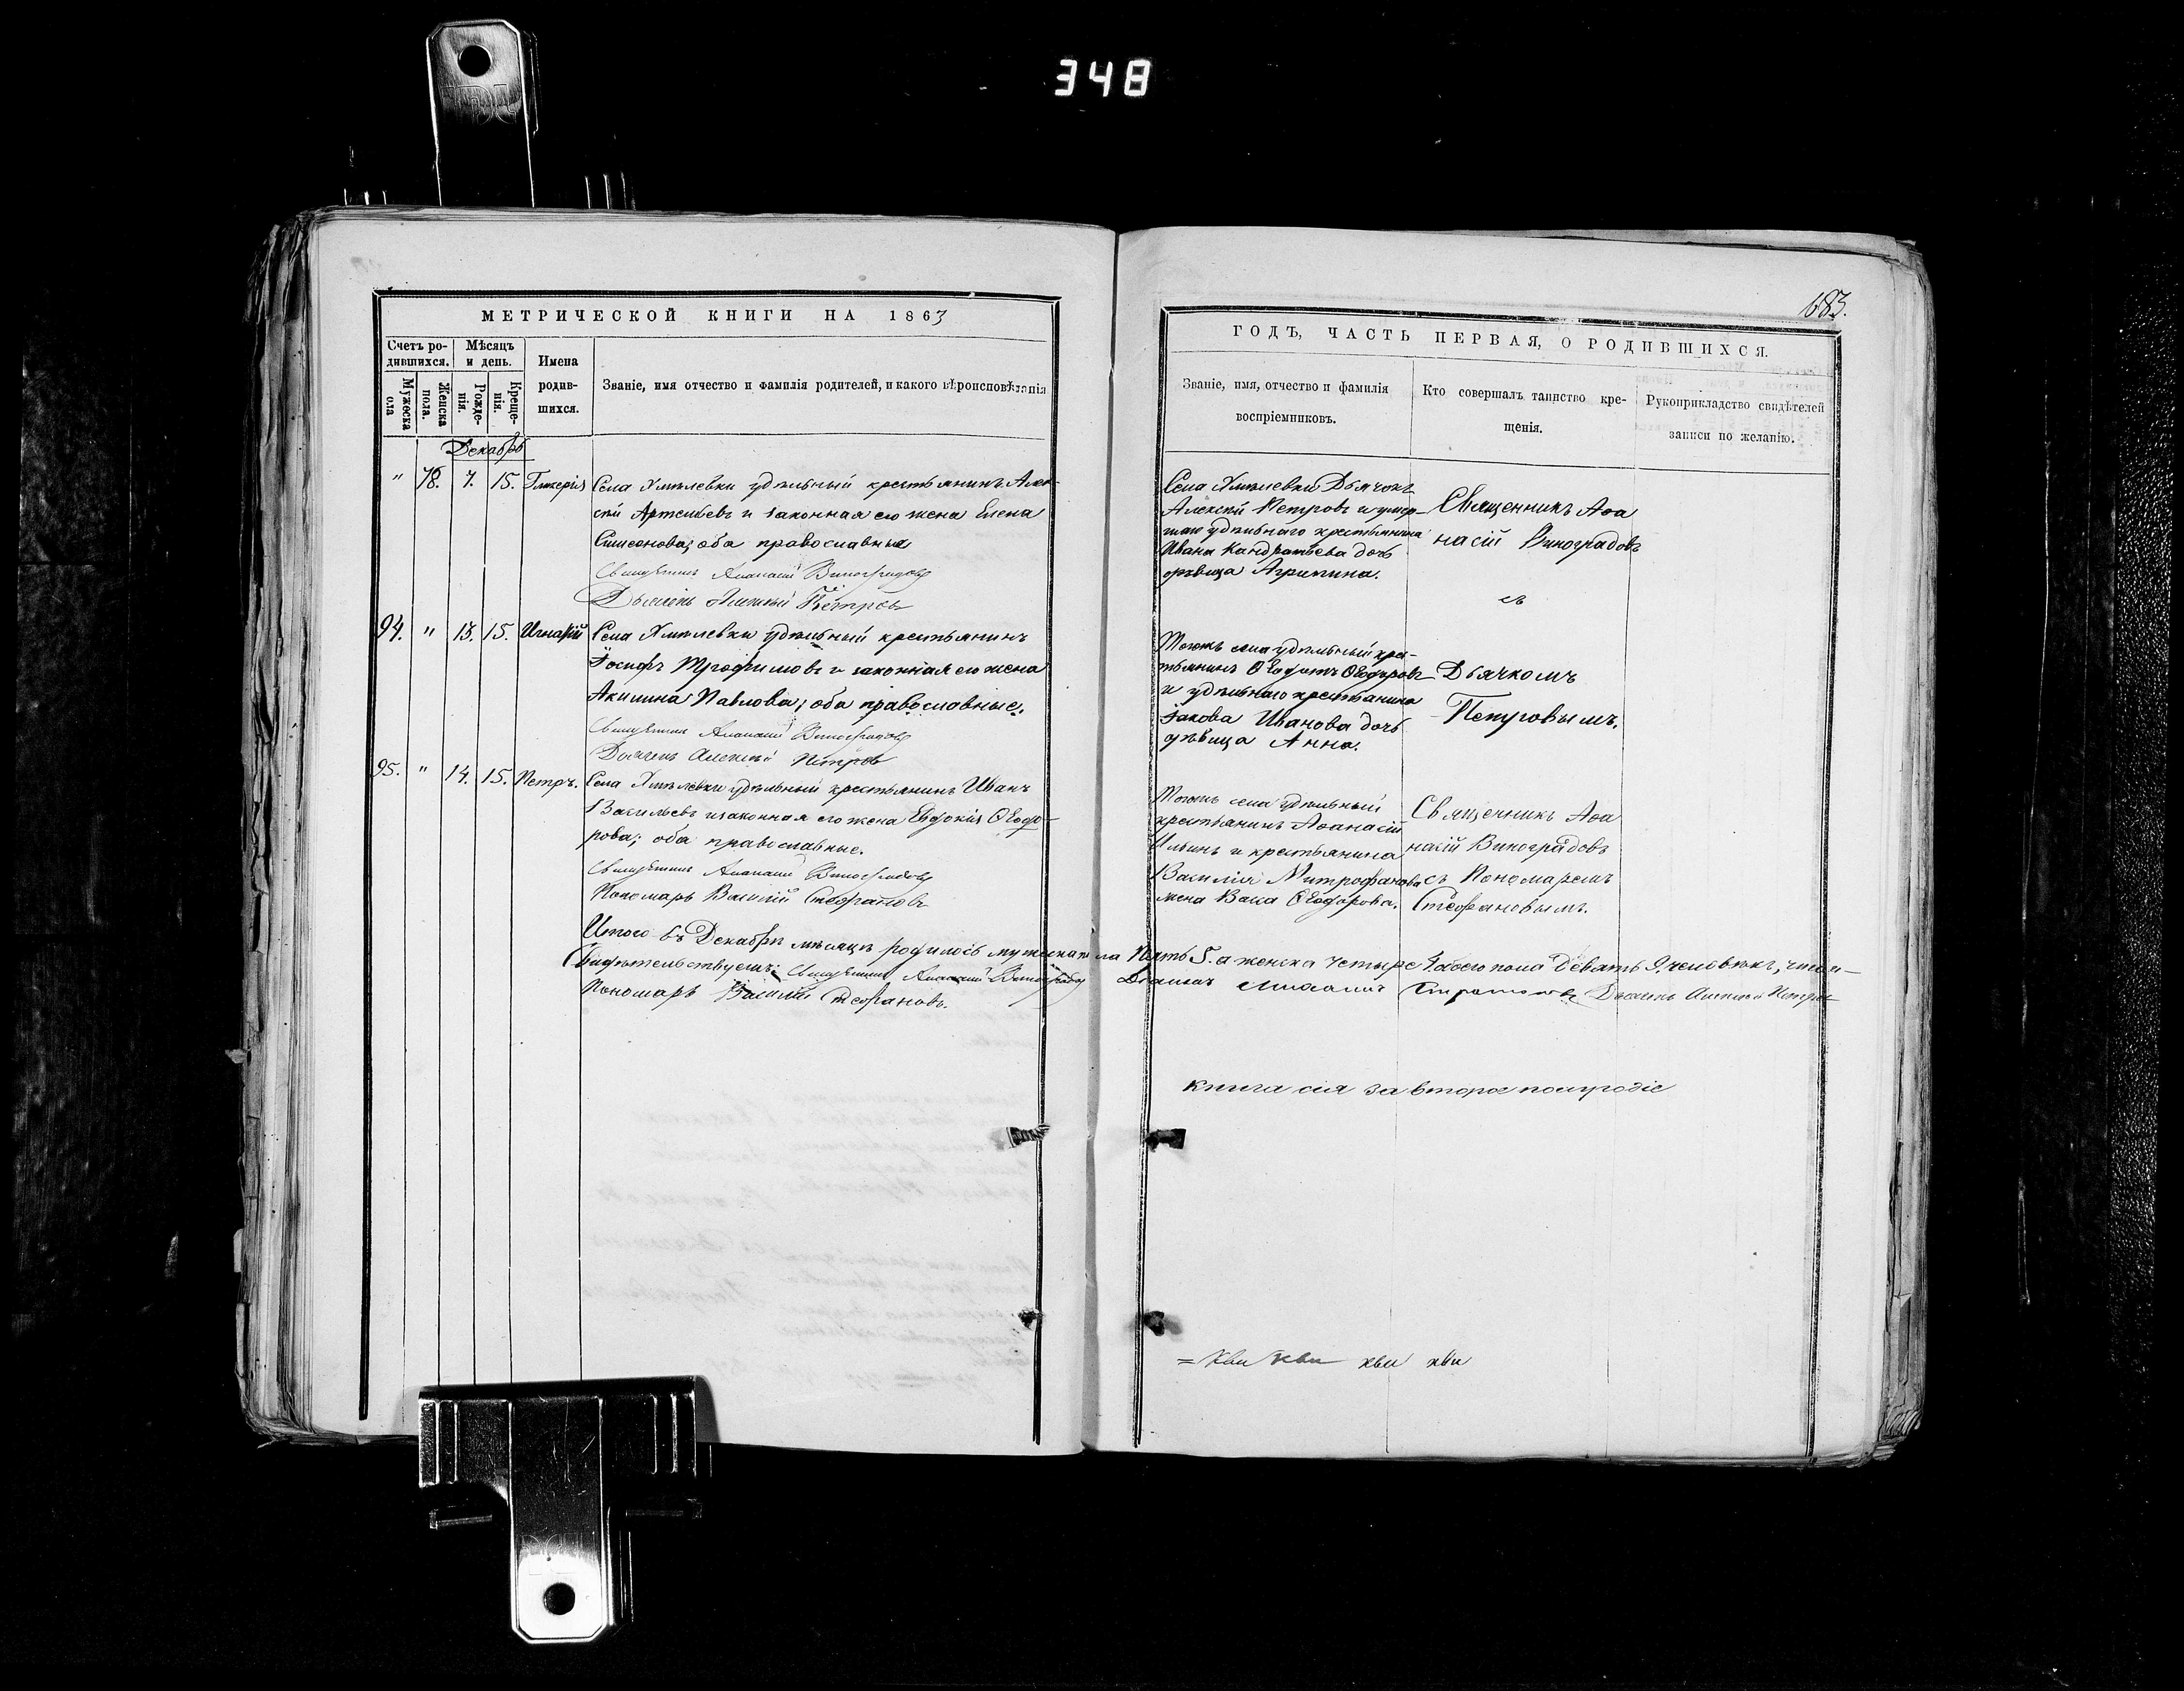 348
МЕТРИЧЕСКОЙ КНИГИ НА 1863
Счетъ ро-
дившихся.
Мѣсяцъ
и день.
Имена
родив-
шихся.
Званіе, имя отчество и фамилія родителей, и какого вѣроисповѣданія
Мужеска
пола
Женска
пола.
Рожде-
нія.
Креще-
нія.
Декабрь
" 78. 7. 15. Гликерія
Села Хмѣлевки удѣльный крестьянинъ Алек-
сѣй Артемьевъ и законная его жена Елена
Симеонова; оба православныя
Священникъ Аѳанасій Виноградовъ
Дьячекъ Алексѣй Петровъ
94. " 13. 15. Игнатій
Села Хмѣлевки удѣльный крестьянинъ
Іосифъ Трофимовъ и законная его жена
Акилина Павлова; оба православные.
Священникъ Аѳанасій Виноградовъ
Дьячекъ Алексѣй Петровъ
95. " 14. 15. Петръ.
Села Хмѣлевки удѣльный крестьянинъ Иванъ
Васильевъ и законная его жена Евдокія Ѳеодо-
рова; оба православные.
Священникъ Аѳанасій Виноградовъ
Пономарь Василій Стефановъ
Итого въ Декабрѣ мѣсяцѣ родилось мужеска пола Пять 5. а женска четыре 4. обоего пола Девять 9. человѣкъ, въ томъ
Свидѣтельствуемъ: Священникъ Аѳанасій Виноградовъ Діаконъ Михаилъ Дьячекъ Алексѣй Петровъ
Пономарь Василій Стефановъ.
683.
ГОДЪ, ЧАСТЬ ПЕРВАЯ, О РОДИВШИХСЯ.
Званіе, имя, отчество и фамилія
воспріемниковъ.
Кто совершалъ таинство кре-
щенія.
Рукоприкладство свидѣтелей
записи по желанію.
Села Хмѣлевки Дьячокъ
Алексѣй Петровъ и умер-
шаго удѣльнаго крестьянина
Ивана Кандратьева дочь
дѣвица Агрипина.
Священникъ Аѳа
насій Виноградовъ
съ
Тогожъ села удѣльный крес-
тьянинъ Ѳеодотъ Ѳеодоровъ
и удѣльнаго крестьянина
Іакова Иванова дочь
дѣвица Анна.
Дьячкомъ
Петровымъ.
Тогожъ села удѣльный
крестьянинъ Аѳанасій
Ильинъ и крестьянина
Василія Митрофанова
жена Васса Ѳеодорова.
Священникъ Аѳа
насій Виноградовъ
съ Пономаремъ
Стефановымъ.
книга сія за второе полугодіе